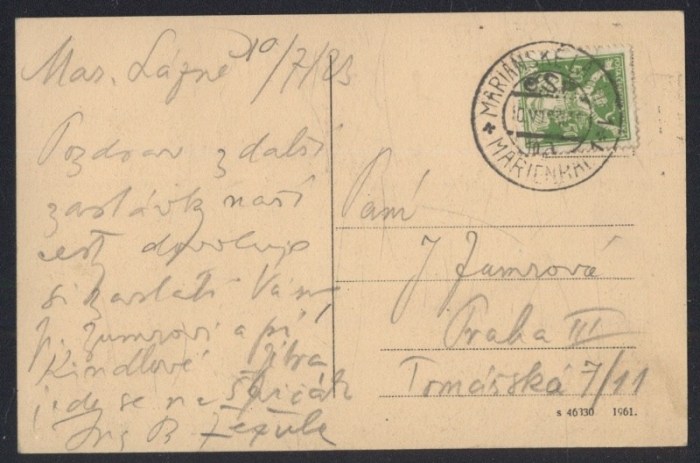 Mar. Lázně 10/7/23
Pozdrav z další
zastávky naší
cest dovoluje
si zaslati Vám,
p. Zumrovi a pí
Kindlové Zítra
jede se na Špičák
Ing B Zezula
MARIÁNSKÉ
MARIENBAD
Paní
J Zumrová
Praha III
Tomášská 7/11
s 46330 1961.